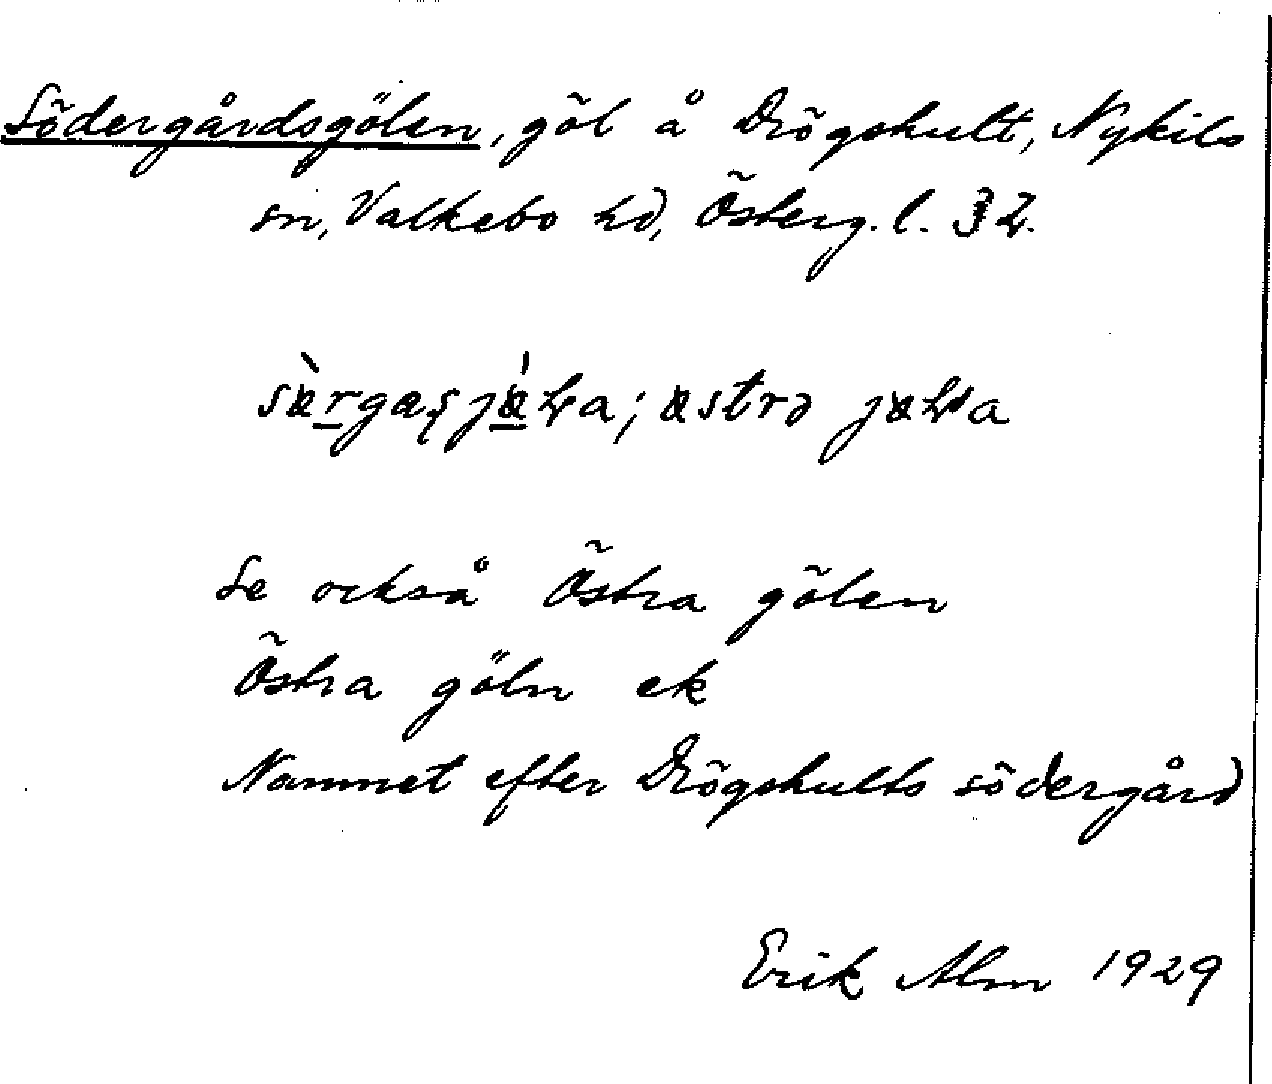 Södergårdsgölen, göl å Drögshult, Nykils
sn, Valkebo hd, Österg. l. 32.
Se också Östra gölen
Östra göln ek
Namnet efter Drögshults södergård
Erik Alm 1929